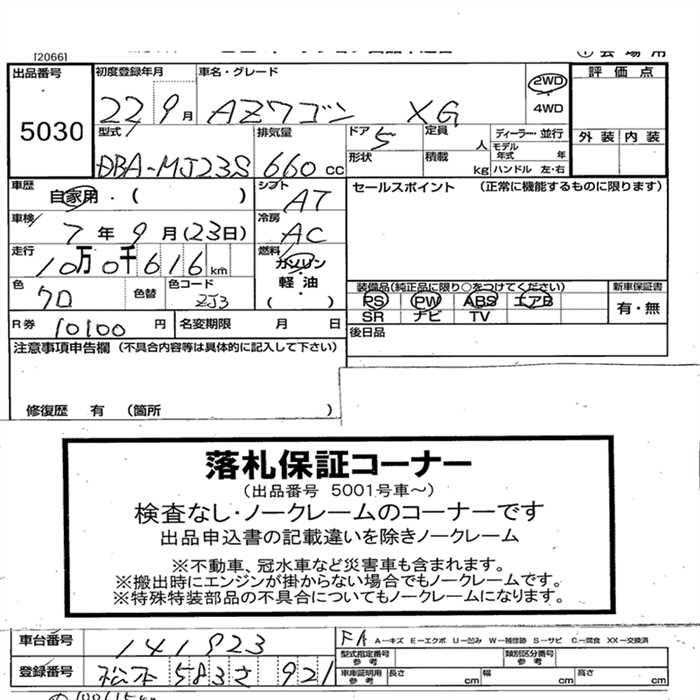 [20661]
出品番号 初度登録年月 車名・グレード
評価点
5030 22 9月 AZワゴン XG 2WD 4WD
外装 内装
型式 排気量 ドア 定員 ディーラー・並行
DBA-MJ23S 660cc 5 人 モデル年式 年
形状 積載 kg ハンドル 左・右
車歴 自家用・( ) シフト AT
セールスポイント (正常に機能するものに限ります)
車検 7年9月(23日) 冷房 AC
走行 10万0千616km 燃料 ガソリン
軽油
( )
色 クロ 色替 色コード ZJ3
装備品(純正品に限り○をつけてください) 新車保証書
PS PW ABS エアB 有・無
SR ナビ TV
R券 10100円 名変期限 月 日
後日品
注意事項申告欄 (不具合内容等は具体的に記入して下さい)
修復歴 有 (箇所 )
落札保証コーナー
(出品番号 5001号車~)
検査なし・ノークレームのコーナーです
出品申込書の記載違いを除きノークレーム
※不動車、冠水車など災害車も含まれます。
※搬出時にエンジンが掛からない場合でもノークレームです。
※特殊特装部品の不具合についてもノークレームになります。
車台番号 141823 FA A−キズ E−エクボ U−凹み W−補修跡 S−サビ C−腐食 XX−交換済
型式指定番号 参考 類別区分番号 参考
登録番号 松本 583 さ 921 車庫証明用 参考 長さ cm 幅 cm 高さ cm